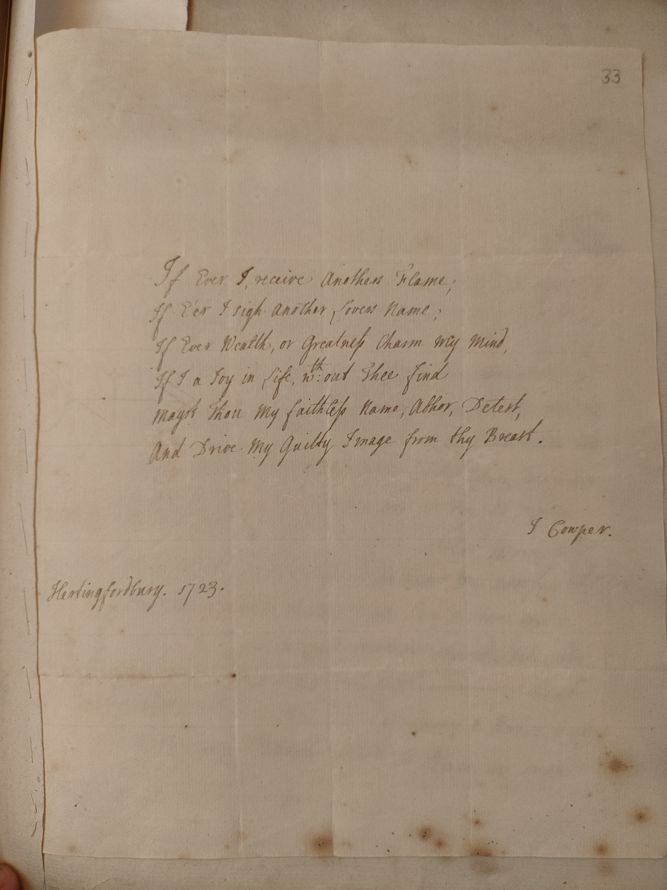 33
If Ever I, receive Anothers Flame;
If E'er I sigh Another Lovers Name;
If Ever Wealth, or Greatness Charm My Mind,
If I a Joy in Life, wth:out Thee find
Mayst Thou My faithless Name, Abhor, Detest,
And Drive My Guilty Image from thy Breast.
J Cowper.
Hertingfordbury. 1723.